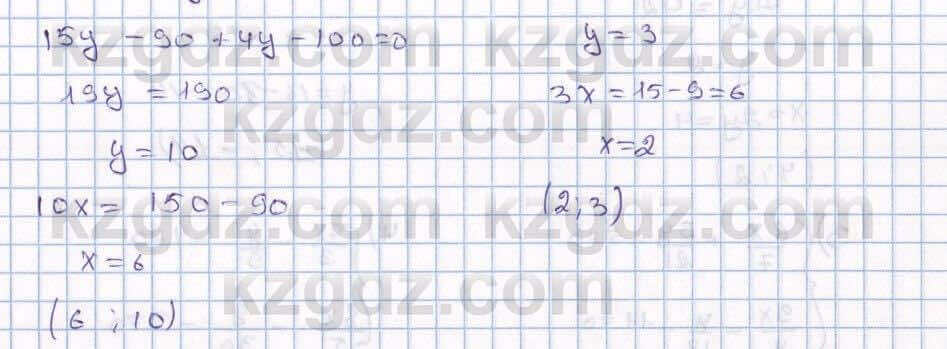 15y - 90 + 4y - 100 = 0
19y = 190
y = 10
10x = 150 - 90
x = 6
(6 ; 10)
y = 3
3x = 15 - 9 = 6
x = 2
(2; 3)
kzgdz.com kzgdz.com
kzgdz.com
kzgdz.com kzgdz.com
kzgdz.com